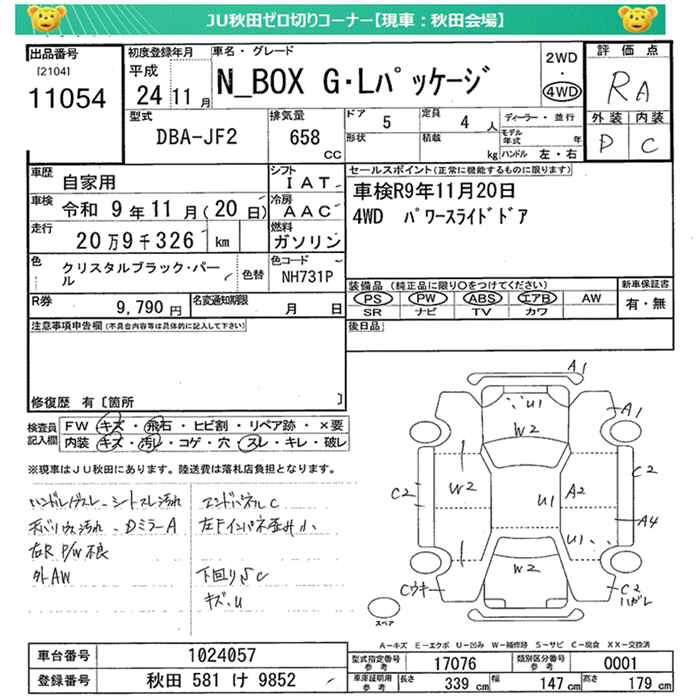 JU秋田ゼロ切りコーナー【現車：秋田会場】
出品番号
[2104]
11054
初度登録年月
平成
24 11 月
車名・グレード
N_BOX G・Lパッケージ
2WD
・
4WD
評価点
RA
外装 内装
P C
型式
DBA-JF2
排気量
658
CC
ドア
5
定員
4 人
形状
積載
kg
ディーラー・並行
モデル年式 年
ハンドル 左・右
車歴
自家用
シフト
IAT
車検
令和 9 年 11 月 (20 日)
冷房
AAC
走行
20 万 9 千 326 km
燃料
ガソリン
色
クリスタルブラック・パール
色替
色コード
NH731P
R券
9,790 円
名変通知期限
月 日
セールスポイント(正常に機能するものに限ります)
車検R9年11月20日
4WD パワースライドドア
装備品 (純正品に限り○をつけてください)
PS PW ABS エアB AW
SR ナビ TV カワ
新車保証書
有・無
後日品
注意事項申告欄(不具合内容等は具体的に記入して下さい)
修復歴 有〔箇所 〕
検査員記入欄
FW キズ・飛石・ヒビ割・リペア跡・×要
内装 キズ・汚レ・コゲ・穴・スレ・キレ・破レ
※現車はJU秋田にあります。陸送費は落札店負担となります。
ハンドルスレ シートスレ汚れ
天バリウス汚れ Dミラー A
右R P/W不良
外AW
エンドパネルC
左Fインパネ歪み小
下回りSC
キズ、U
A1
U1
W2
A1
C2
W2
C2
U1
A2
A4
U1
W2
Cウキ
C2
ハガレ
スペア
A−キズ E−エクボ U−凹み W−補修跡 S−サビ C−腐食 XX−交換済
車台番号
1024057
登録番号
秋田 581 け 9852
型式指定番号
参考
17076
類別区分番号
参考
0001
車庫証明用
参考
長さ
339 cm
幅
147 cm
高さ
179 cm